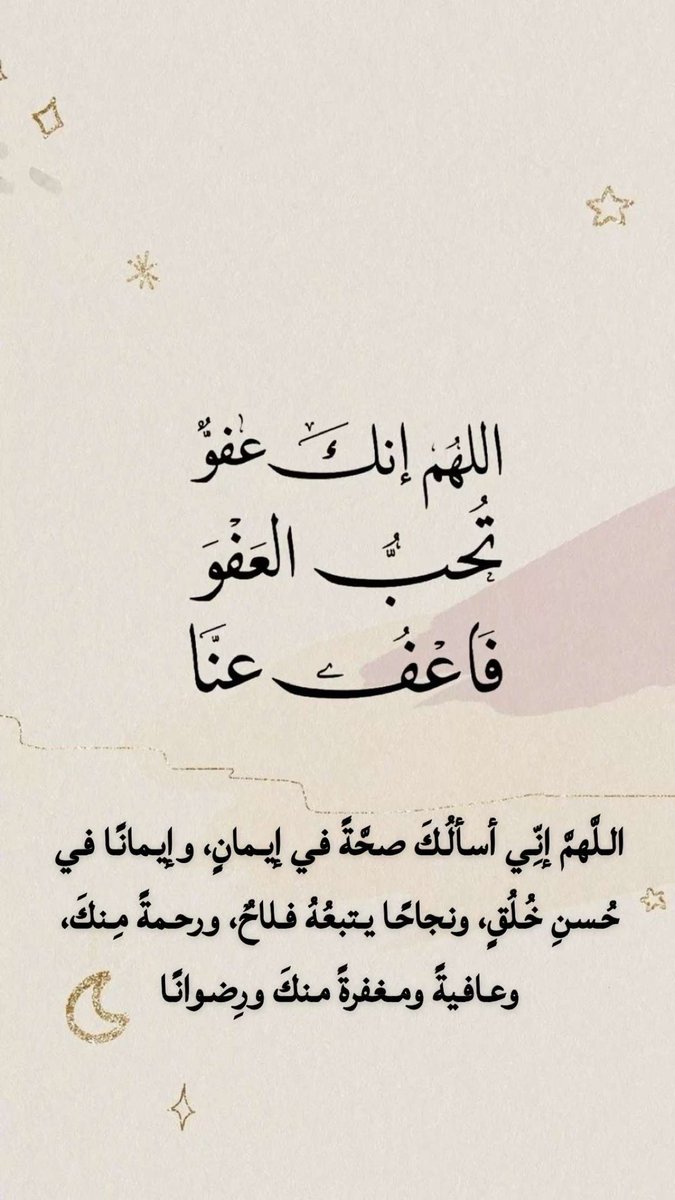 اللهُم إنكَ عفوٌّ
تُحبُّ العَفْوَ
فَاعْفُ عنَّا
اللَّهمَّ إنِّي أسألُكَ صحَّةً في إيمانٍ، وإيمانًا في
حُسنِ خُلُقٍ، ونجاحًا يتبعُهُ فلاحٌ، ورحمةً مِنكَ،
وعافيةً ومغفرةً منكَ ورِضوانًا